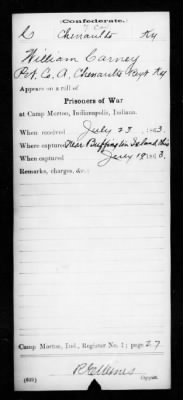 Confederate.
C Chenault's Ky
William Carney
Pvt. Co. A, Chenaults Regt Ky
Appears on a roll of
Prisoners of War
at Camp Morton, Indianapolis, Indiana.
When received July 23, 1863.
Where captured Near Buffington Island Ohio
When captured July 19 1863.
Remarks, charges, &c.:
Camp Morton, Ind., Register No. 1; page 27
(639) Copyist.